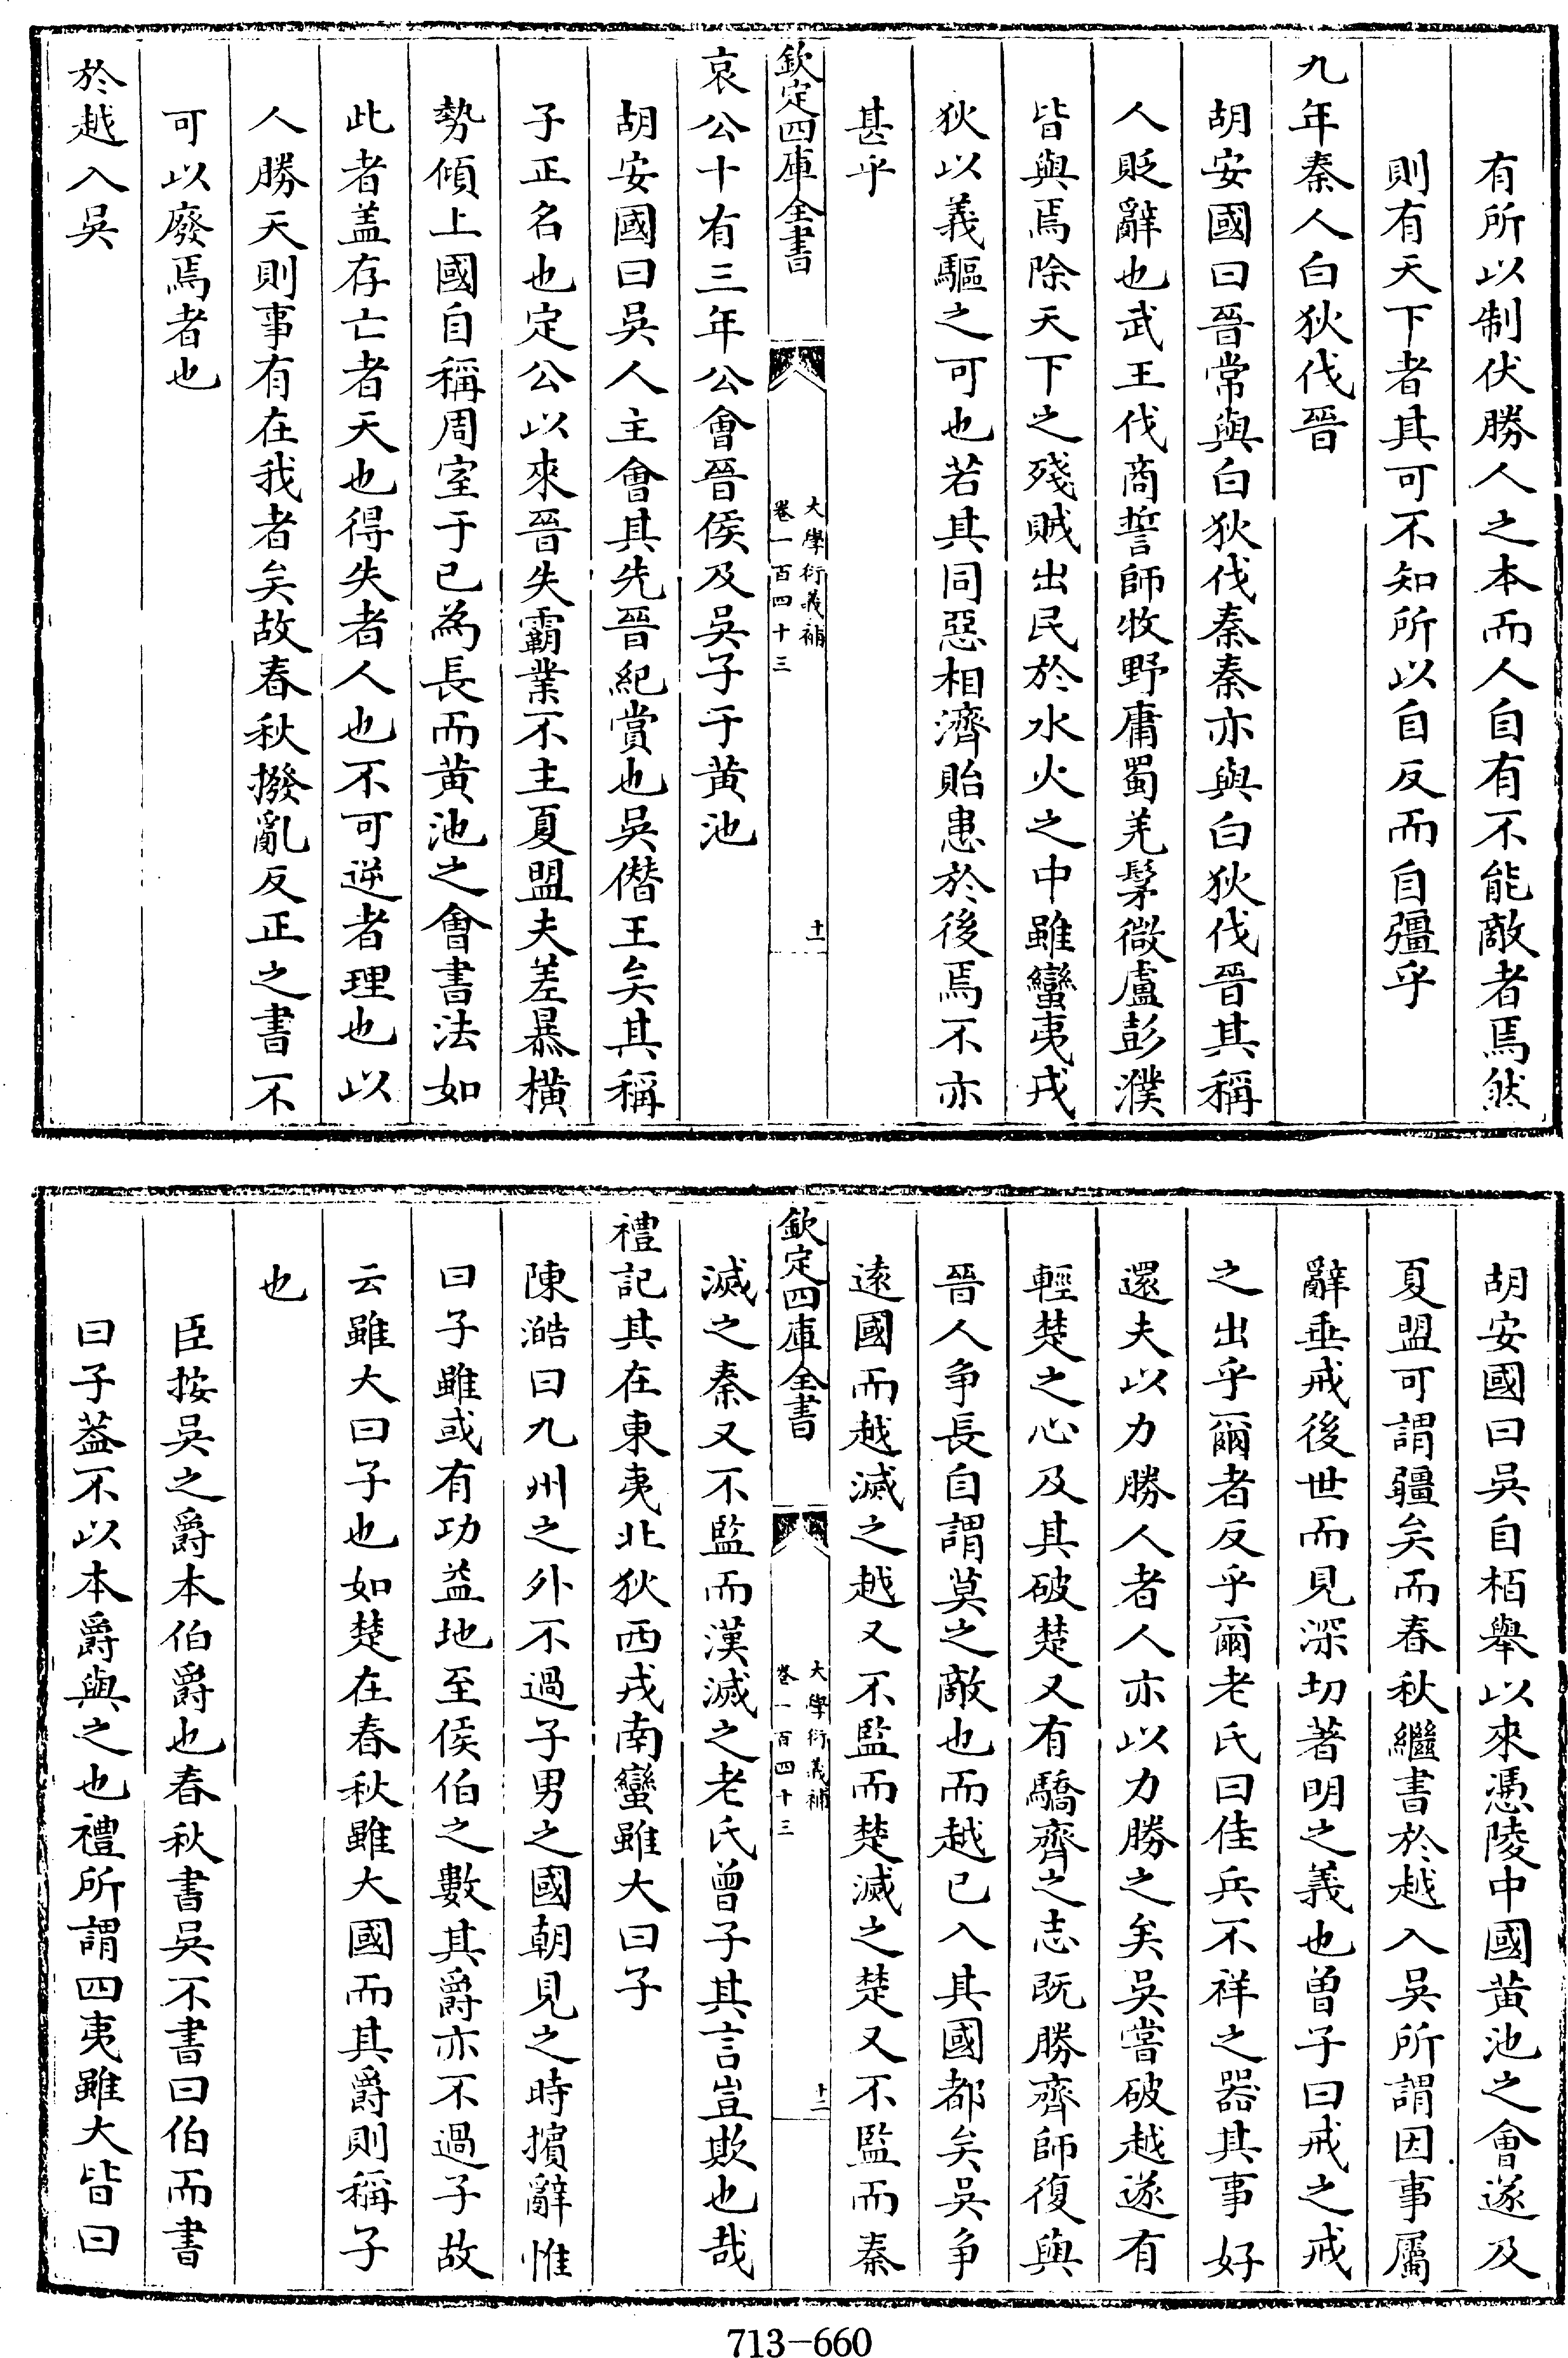 有所以制伏勝人之本而人自有不能敵者焉然
則有天下者其可不知所以自反而自彊乎
九年秦人白狄伐晉
胡安國曰晉常與白狄伐秦秦亦與白狄伐晉其稱
人貶辭也武王伐商誓師牧野庸蜀羌髳微盧彭濮
皆與焉除天下之殘賊出民於水火之中雖蠻夷戎
狄以義驅之可也若其同惡相濟貽患於後焉不亦
甚乎
欽定四庫全書
大學衍義補
卷一百四十三
十一
哀公十有三年公會晉侯及吳子于黄池
胡安國曰吳人主會其先晉紀賞也吳僭王矣其稱
子正名也定公以來晉失霸業不主夏盟夫差暴橫
勢傾上國自稱周室于已為長而黄池之會書法如
此者盖存亡者天也得失者人也不可逆者理也以
人勝天則事有在我者矣故春秋撥亂反正之書不
可以廢焉者也
於越入吳
胡安國曰吳自栢舉以來憑陵中國黄池之會遂及
夏盟可謂彊矣而春秋繼書於越入吳所謂因事屬
辭垂戒後世而見深切著明之義也曾子曰戒之戒
之出乎爾者反乎爾老氏曰佳兵不祥之器其事好
還夫以力勝人者人亦以力勝之矣吳嘗破越遂有
輕楚之心及其破楚又有驕齊之志既勝齊師復與
晉人争長自謂莫之敵也而越已入其國都矣吳争
逺國而越滅之越又不監而楚滅之楚又不監而秦
欽定四庫全書
大學衍義補
卷一百四十三
十二
滅之秦又不監而漢滅之老氏曾子其言豈欺也哉
禮記其在東夷北狄西戎南蠻雖大曰子
陳澔曰九州之外不過子男之國朝見之時擯辭惟
曰子雖或有功益地至侯伯之數其爵亦不過子故
云雖大曰子也如楚在春秋雖大國而其爵則稱子
也
臣按吳之爵本伯爵也春秋書吳不書曰伯而書
曰子葢不以本爵與之也禮所謂四夷雖大皆曰
713-660